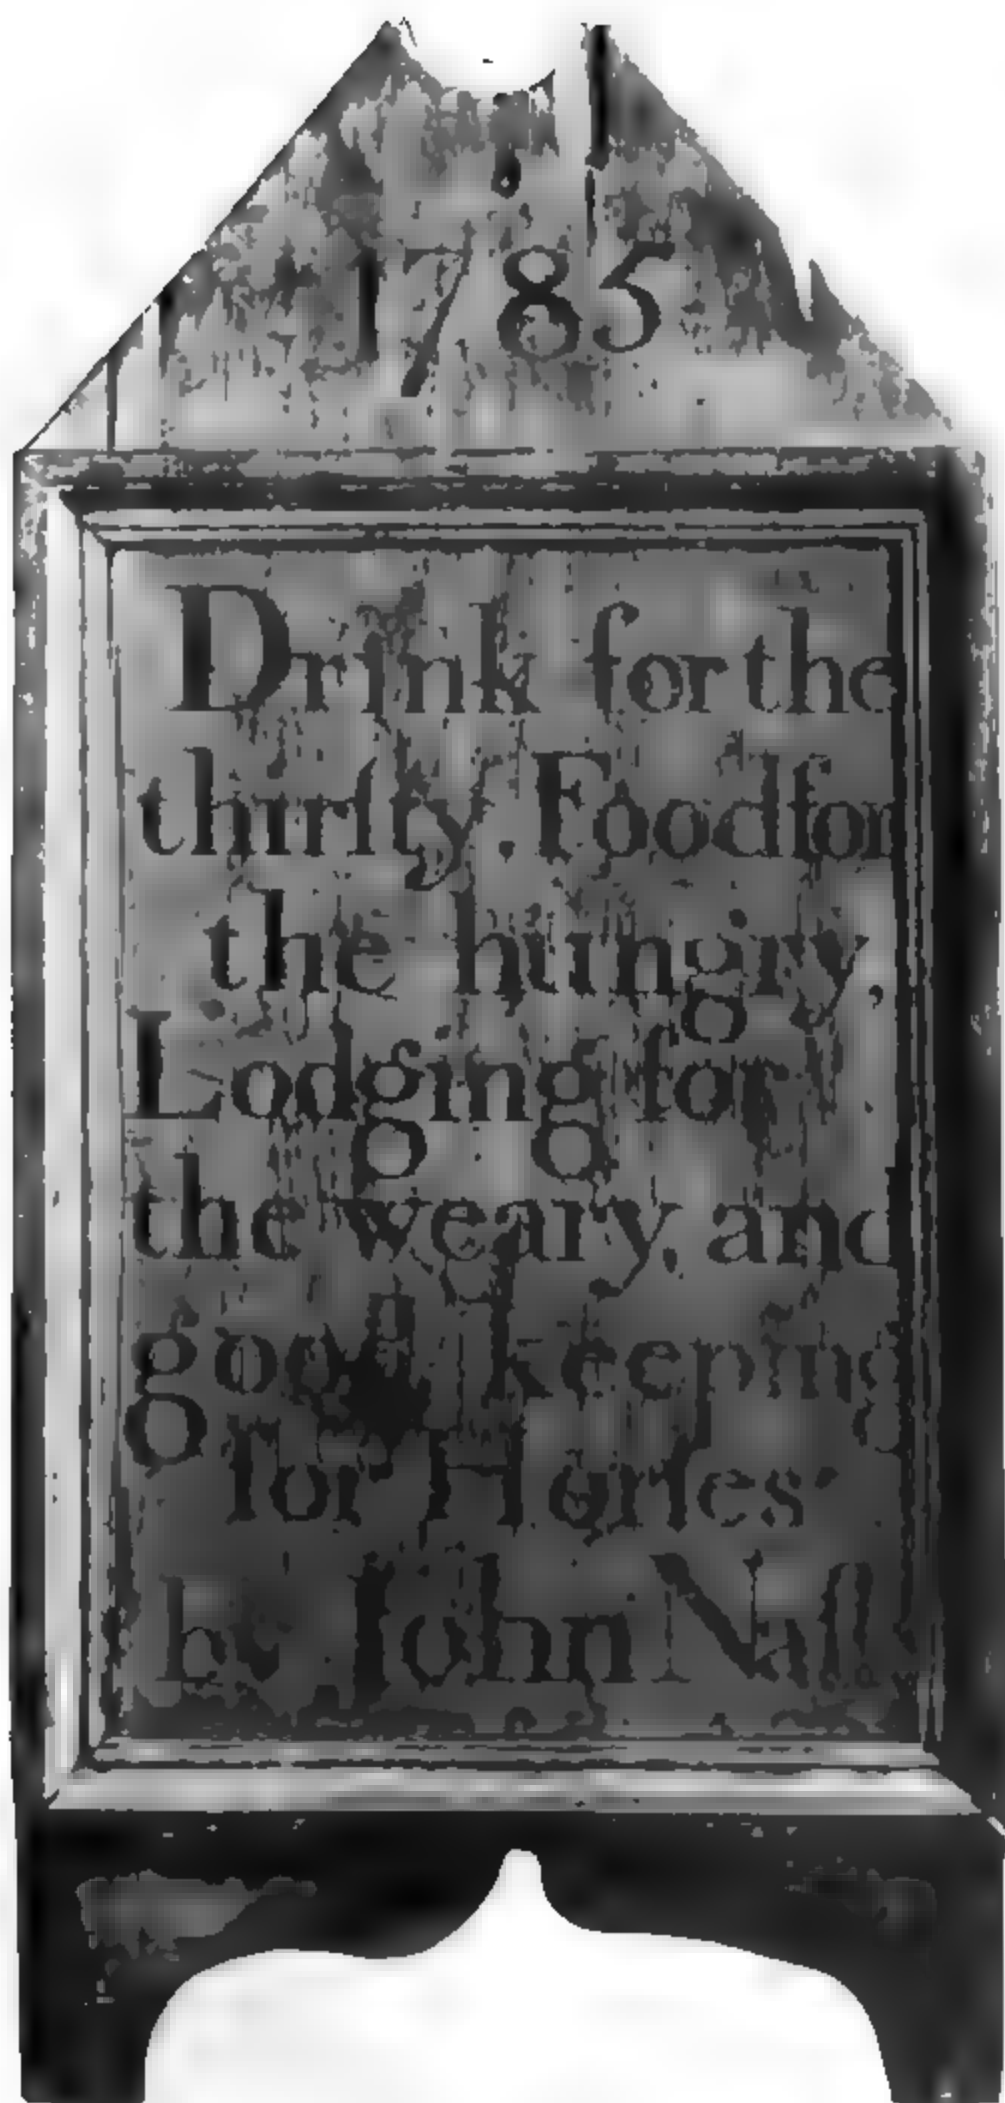 1785
Drink for the
thirſty. Food for
the hungry,
Lodging for
the weary, and
good keeping
for Horſes
by John Naſh